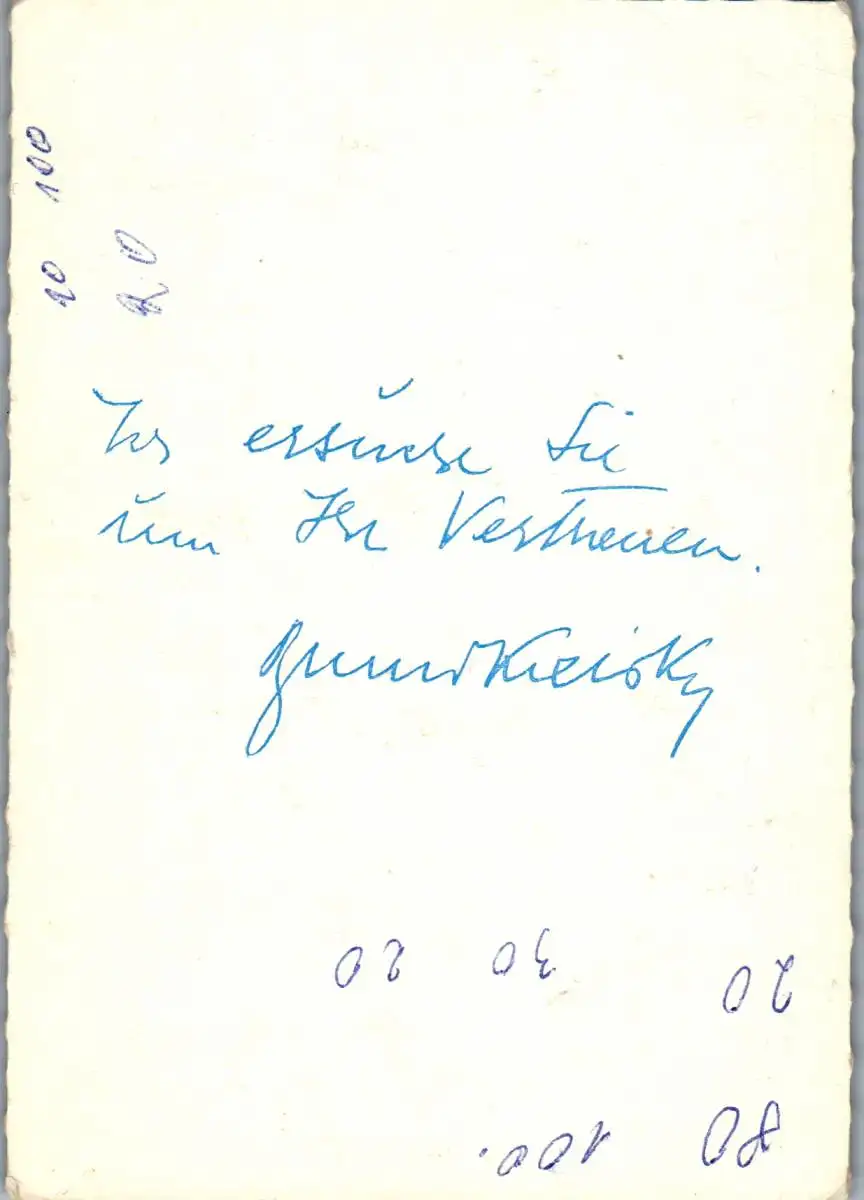 100
20
20
Ich ersuche Sie
um Ihr Vertrauen.
Bruno Kreisky
20 30 20
80 100.